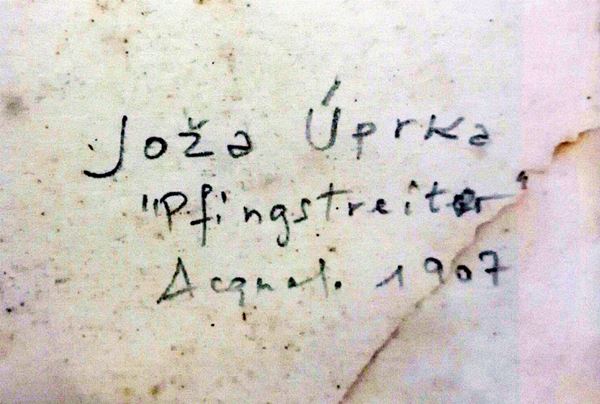 Joža Úprka
"Pfingstreiter"
Acqual. 1907